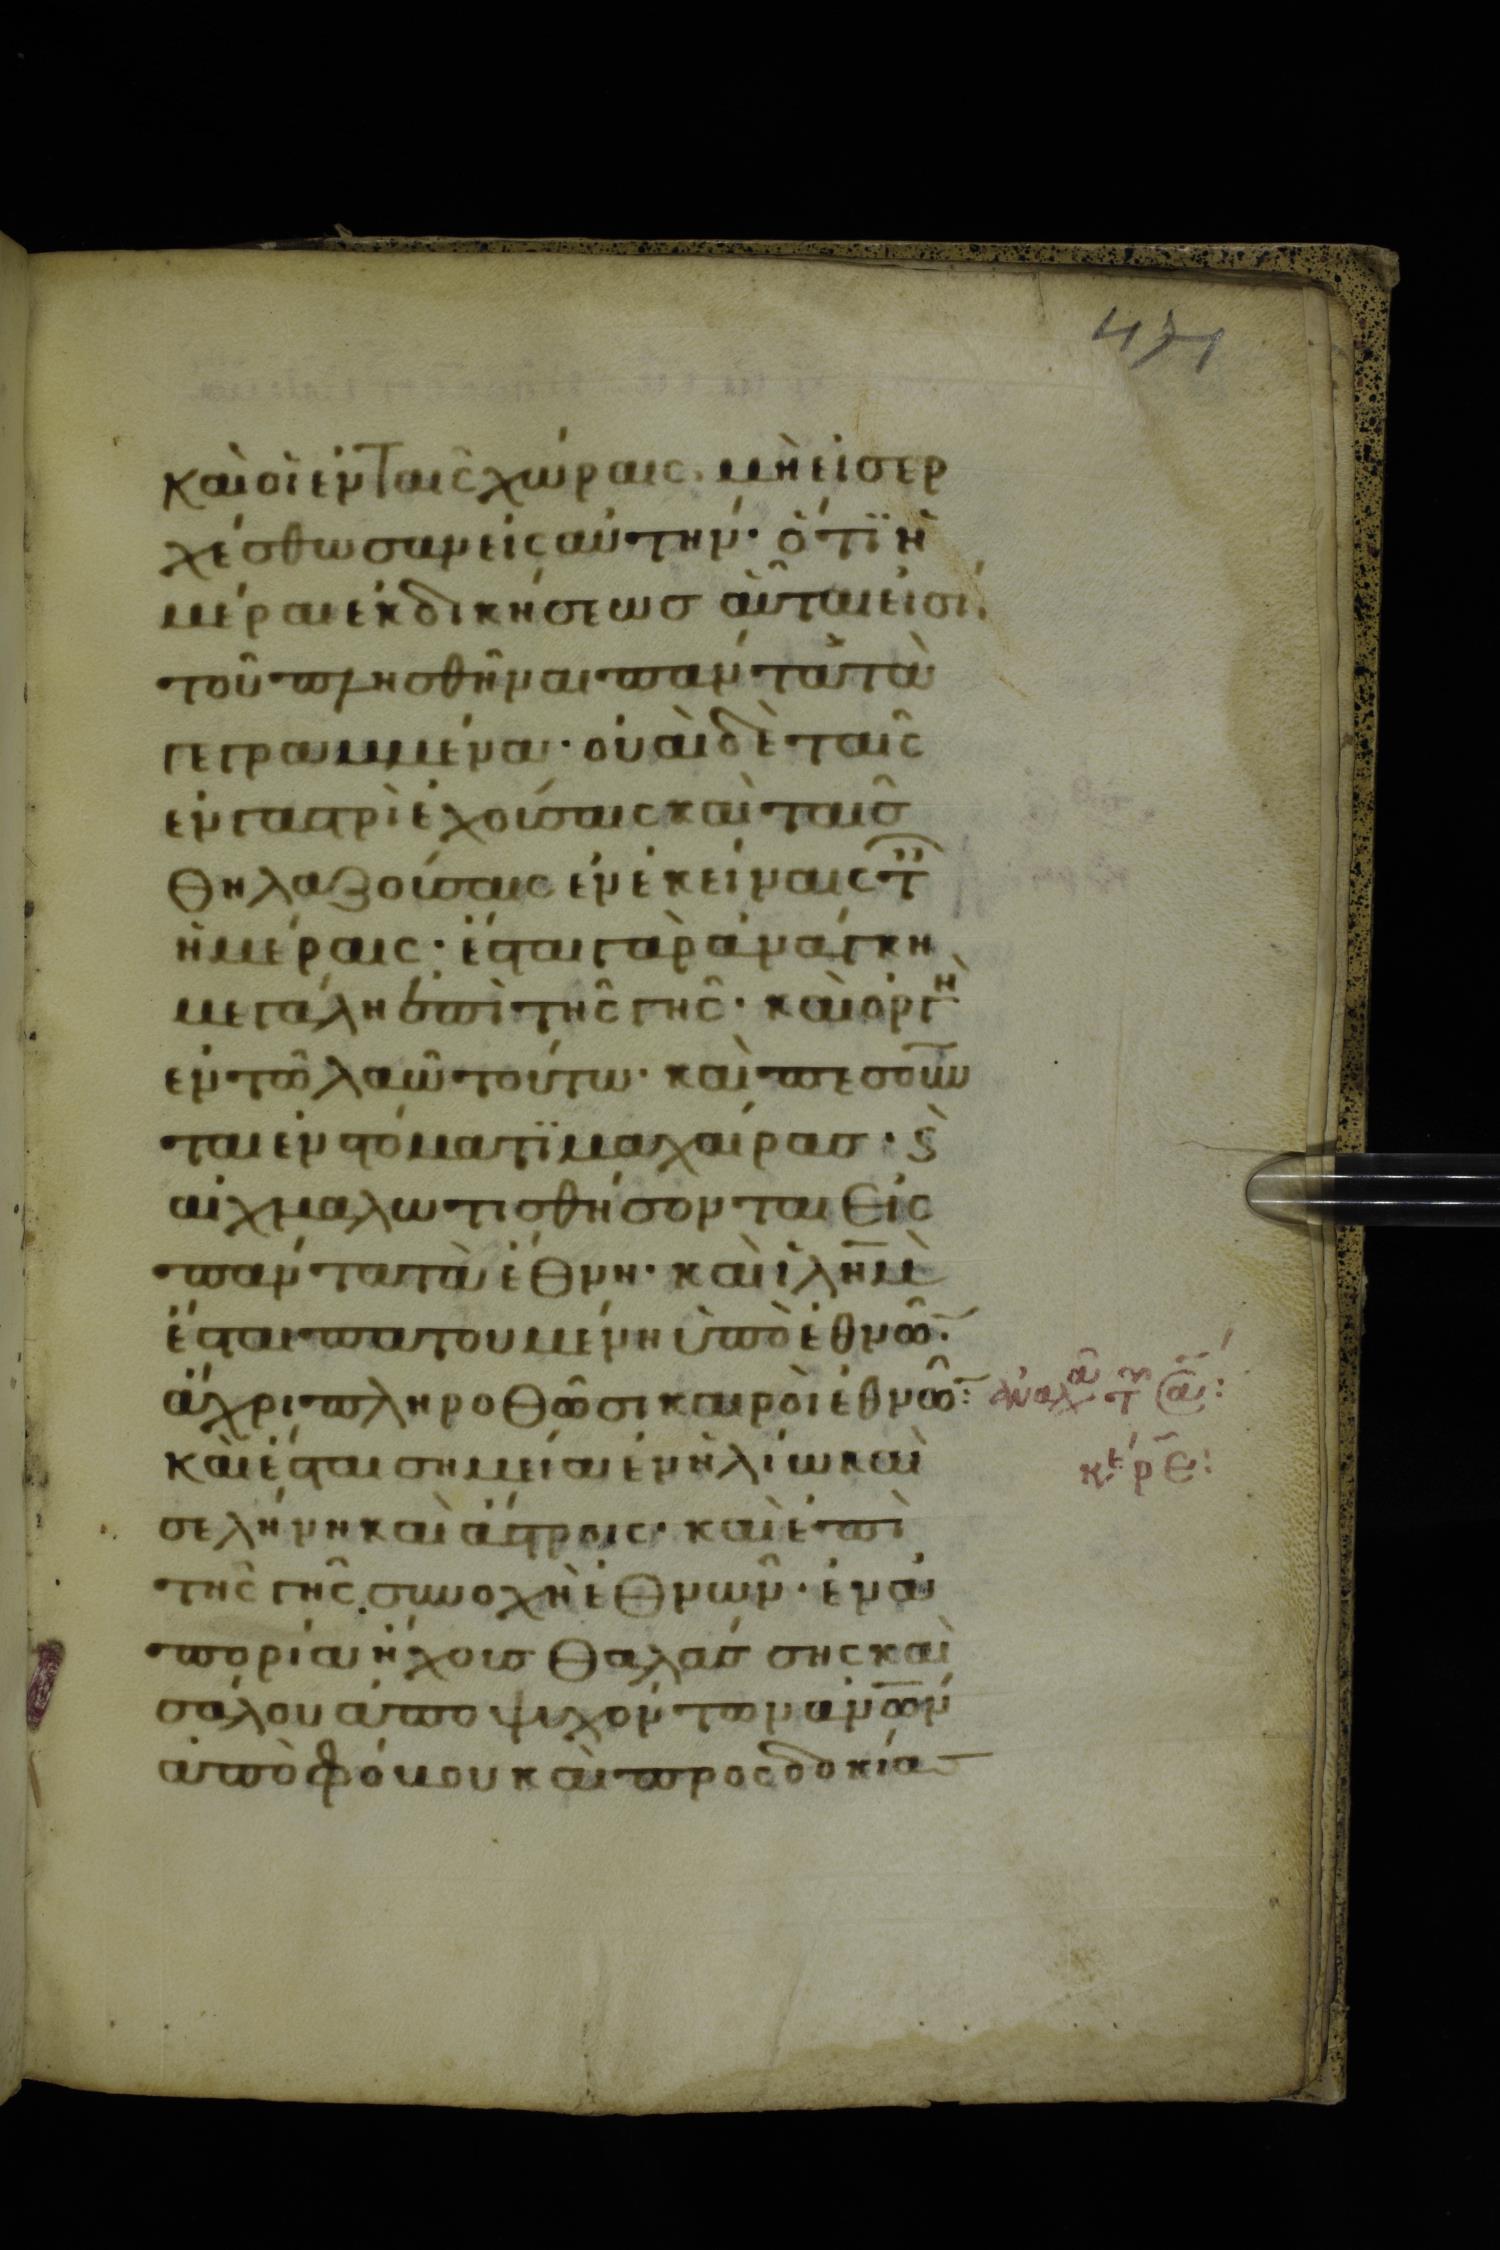 471
καὶ οἱ ἐν ταῖς χώραις. μὴ εἰσερ
χέσθωσαν εἰς αὐτήν· ὅτϊ ἡ
μέραι ἐκδικήσεως αὗται εἰσί.
τοῦ πλησθῆναι πάντα τὰ
γεγραμμένα· οὐαὶ δὲ ταῖς
ἐν γαστρὶ ἐχούσαις καὶ ταῖς
θηλαζούσαις ἐν ἐκείναις τ
ἡμέραις· ἔσται γὰρ ἀνάγκη
μεγάλη ἐπὶ τῆς γῆς· καὶ ὀργὴ
ἐν τῶ λαῶ τούτω· καὶ πεσοῦν
ται ἐν στόματϊ μαχαίρας· ϗ
αἰχμαλωτισθήσονται εἰς
πάντα τὰ ἔθνη· καὶ ἰλῆμ
ἔσται πατουμένη ὑπὸ ἐθνῶ·
ἄχρι πληροθῶσι καιροὶ ἐθνῶ:
καὶ ἔσται σημεία ἐν ἡλίω καὶ
σελήνη καὶ ἄστροις· καὶ ἐπὶ
τῆς γῆς συνοχὴ ἐθνῶν· ἐν ἀ
πορία ἤχοις θαλάσσης καὶ
σάλου ἀποψυχόντων ἀνων
ἀπὸ φόβου καὶ προσδοκία